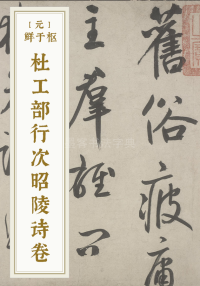 ［元］
鲜于枢
杜工部行次昭陵诗卷
舊俗疲庸
主群雄問